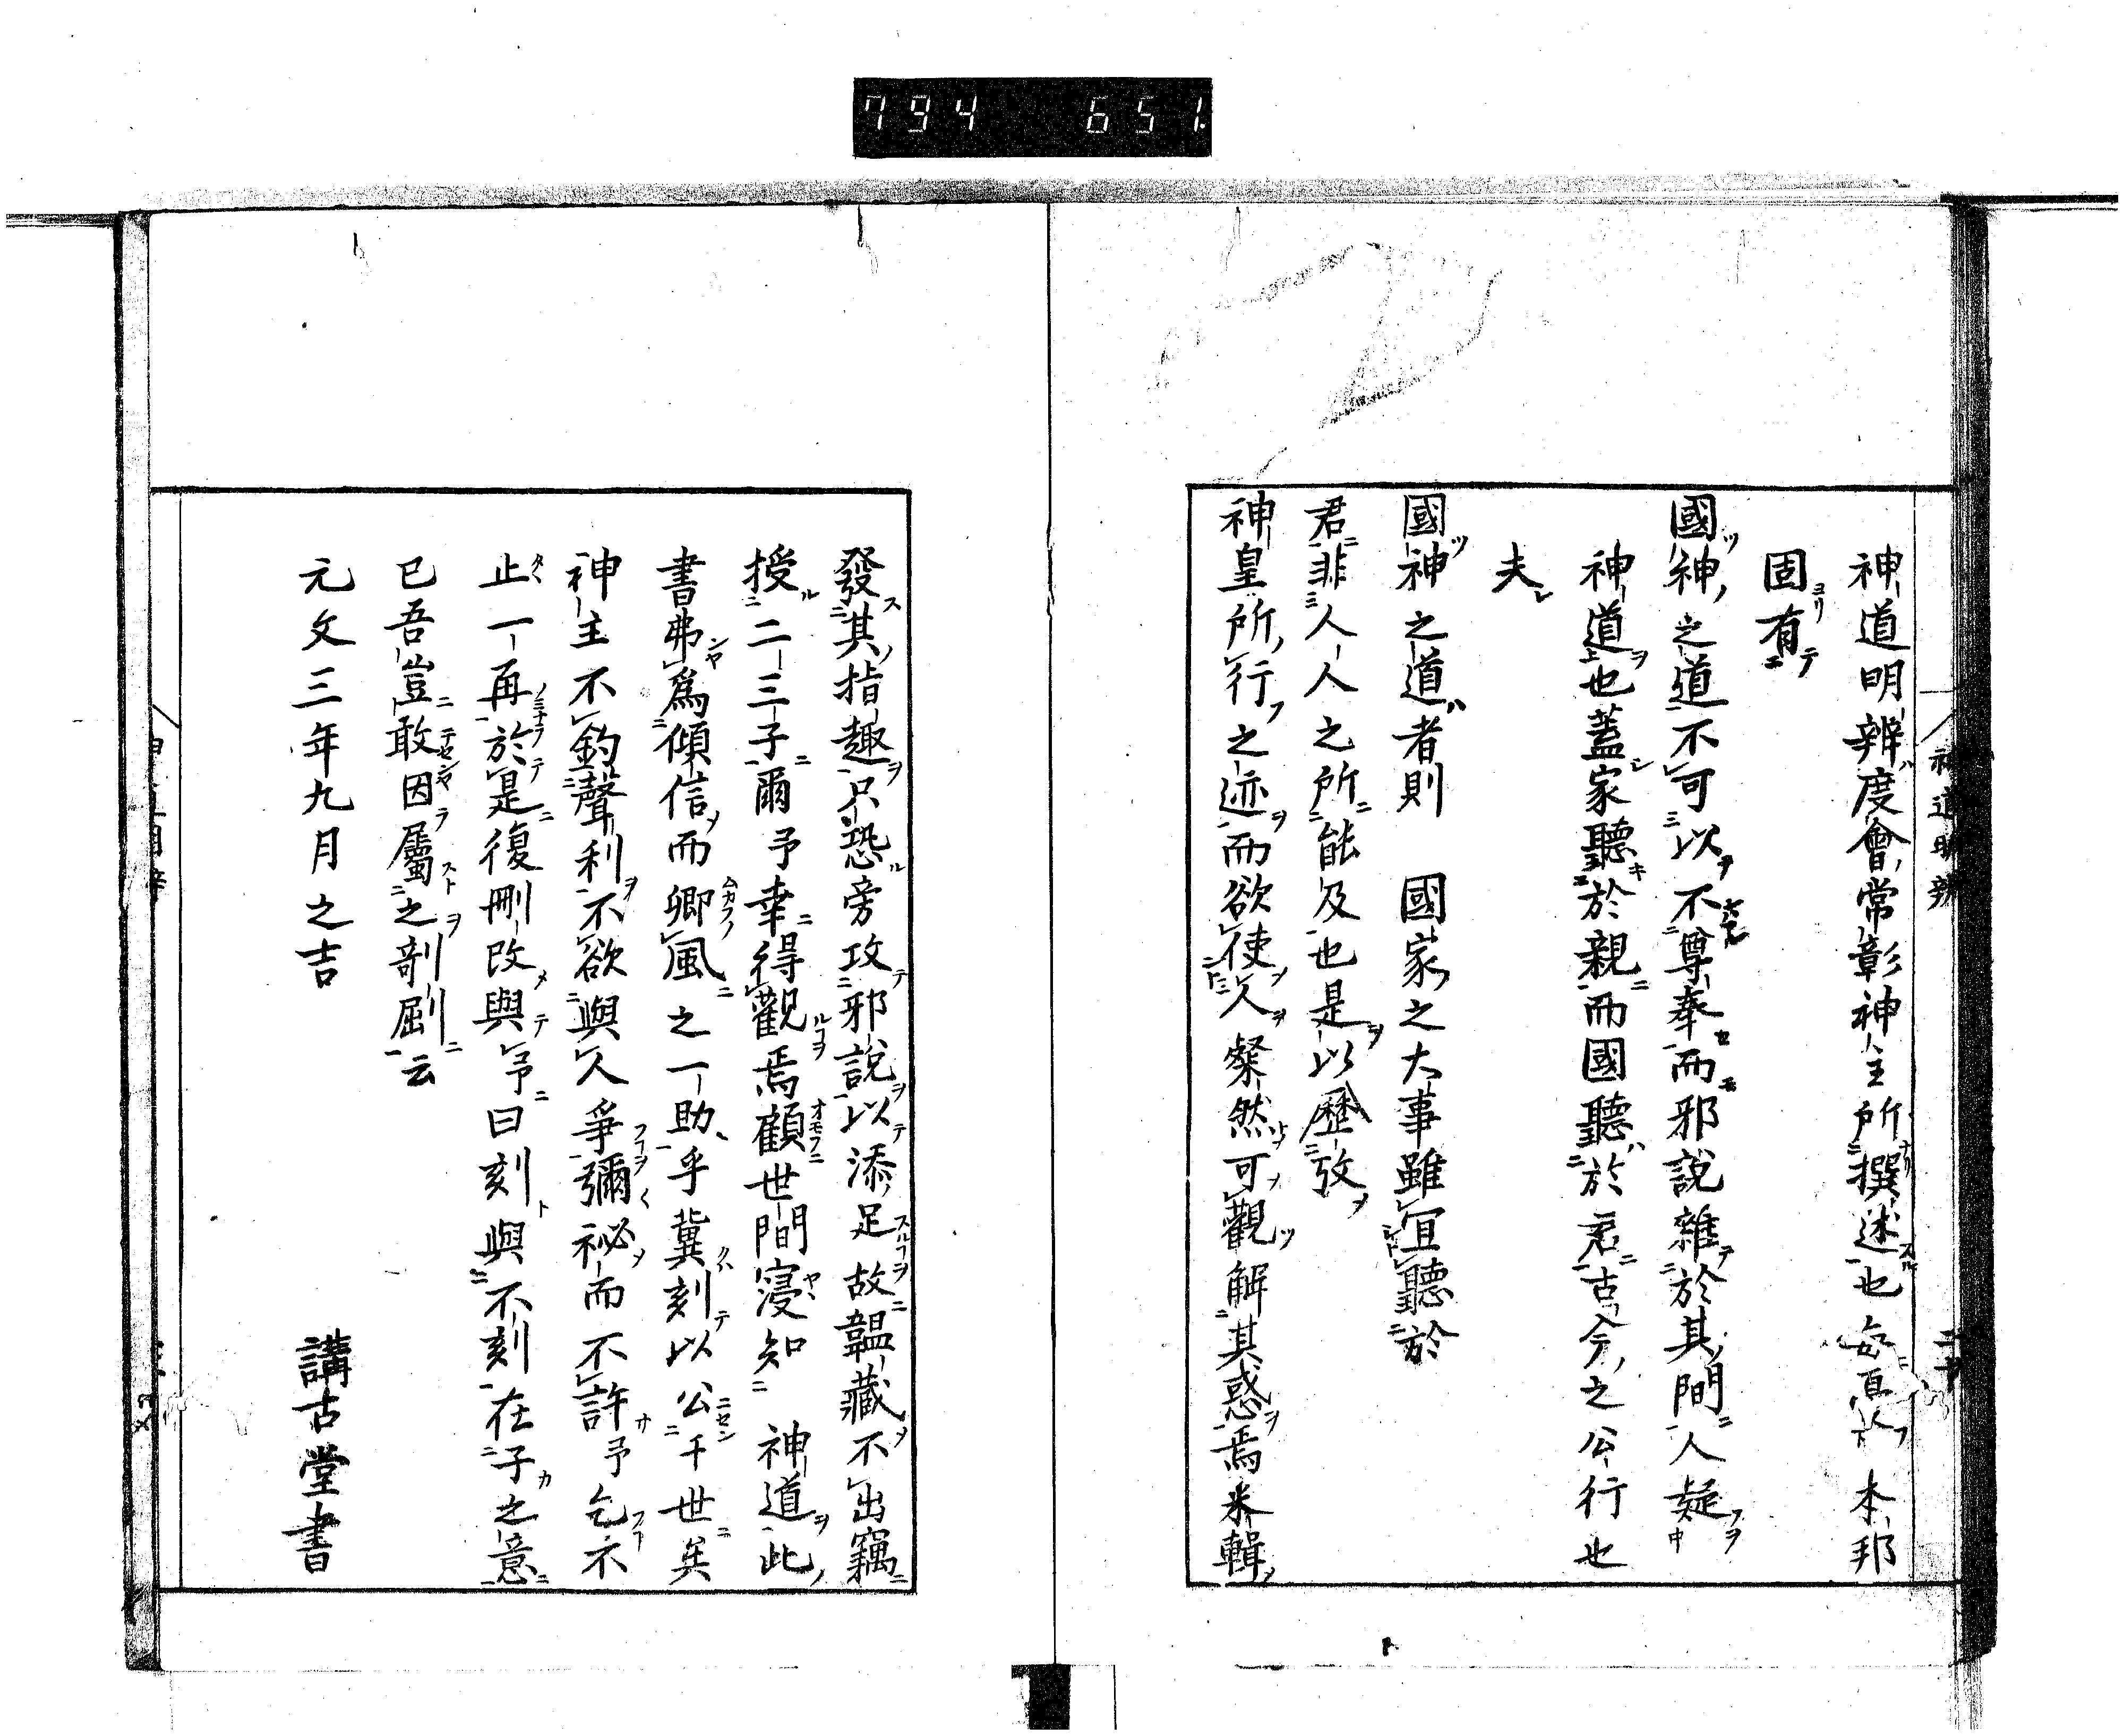 794 651
神道明辨
神道明辨度會常彰神主所撰述也每憂 本邦
固有
國神之道不可以不尊奉而邪說雜於其間人疑
神道也蓋家聽於親而國聽於君古今之公行也
夫
國神之道者則 國家之大事雖宜聽於
君非人人之所能及也是以歷攷
神皇所行之迹而欲使人粲然可觀解其惑焉釆輯
發其指趣只恐旁攻邪說以添足故韞藏不出竊
授二三子爾予幸得觀焉顧世間寖知 神道此
書弗爲傾信而鄉風之一助乎冀刻以公千世矣
神主不釣聲利不欲與人爭彌祕而不許予乞不
止一再於是復刪改與予曰刻與不刻在子之意
已吾豈敢因屬之剞劂云
元文三年九月之吉
講古堂書